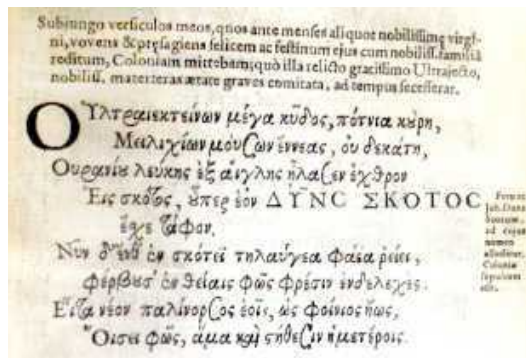 Subjungo versiculos meos, quos ante menses aliquot nobilissimę virgi-
ni, vovens & pręsagiens felicem ac festinum ejus cum nobiliss. familiâ
reditum, Coloniam mittebam; quò illa relicto gratissimo Ultrajecto,
nobiliss. materteras ætate graves comitata, ad tempus secesserat.
Οὐλτραιεκτείνων μέγα κῦδος, πότνια κύρη,
Μειλιχίων μουζῶν ἔννεας, οὐ δεκάτη,
Οὐρανίυ λευκῆς ἐξ αἴγλης ἤλαζεν ἐχθρὸν
Εἰς σκότος, ὅπερ ἐὸν ΔΥΝΣ ΣΚΟΤΟΣ
ἔχε τάφον.
Νῦν δ' ἐν σκότει τηλαυγέα φαίεα
φέρβουσ' ἐν θείαις φῶς φρέσιν ἐνδελεχές.
νέον παλίνορσος ἔοις, ὡς φοίνιος ἥως,
Οἴσει φῶς, ἅμα καὶ ἡμετέροις.
ad cujus
nomen
Colonia